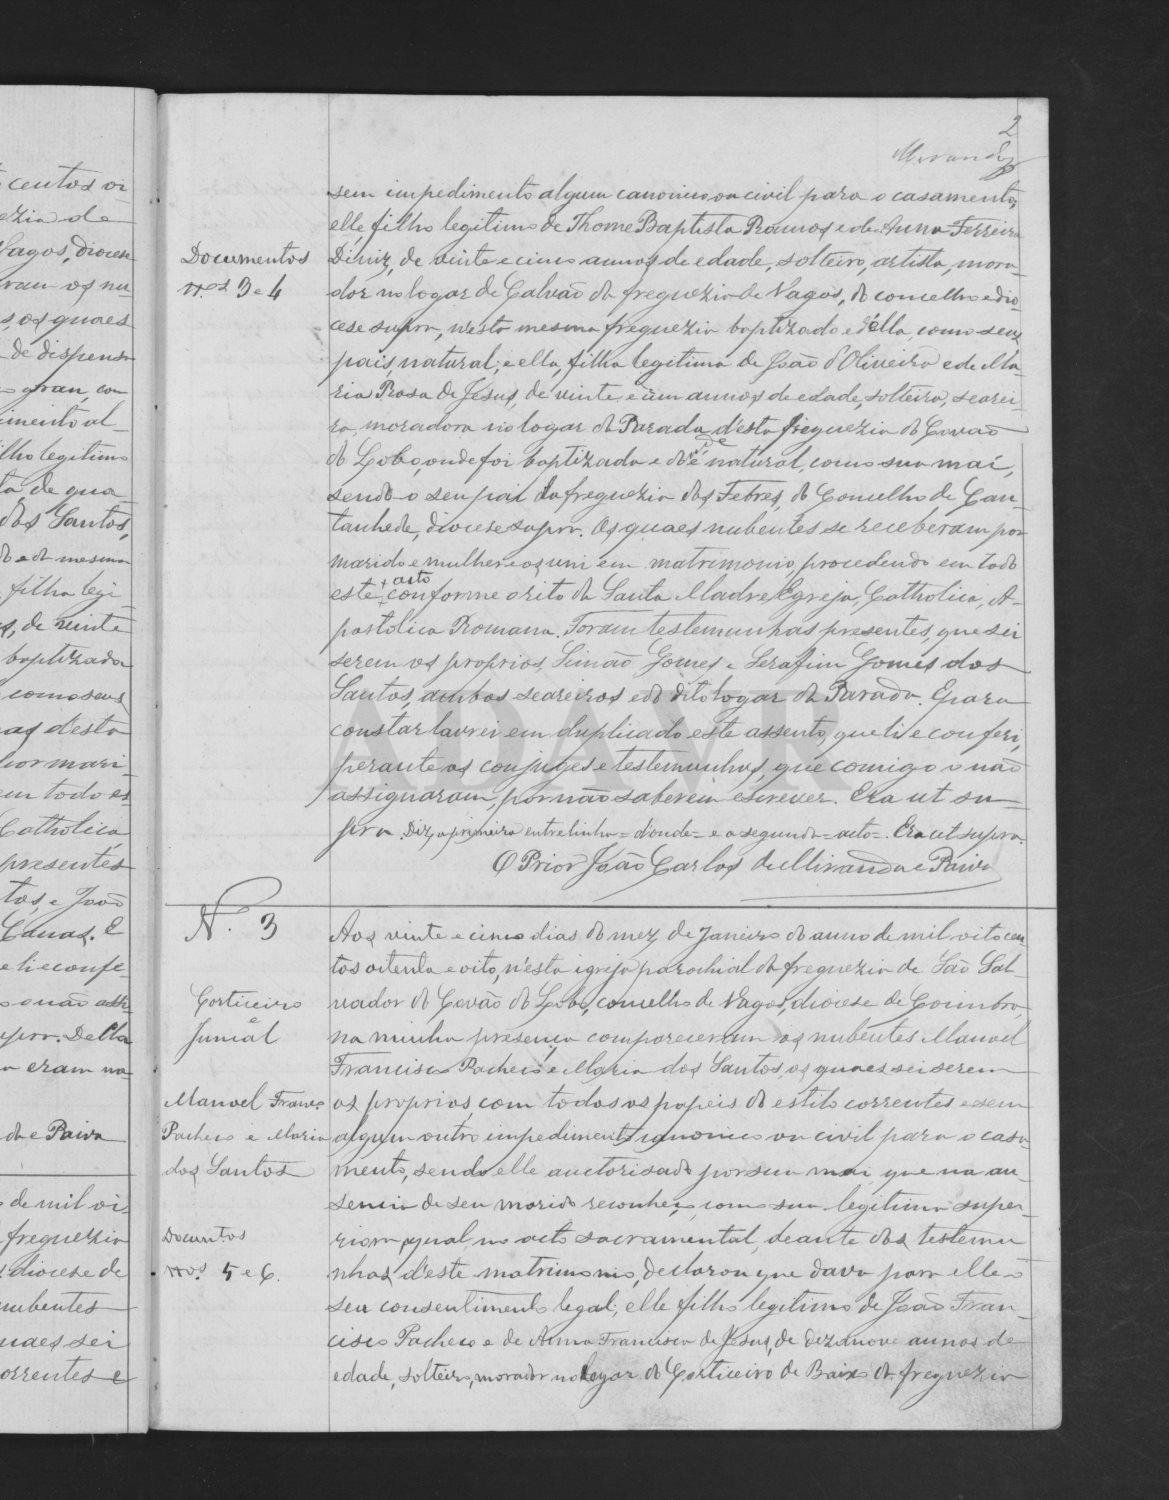 2
Miranda
sem impedimento algum canonico ou civil para o casamento,
elle, filho legitimo de Thome Baptista Ramos e de Anna Ferreira
Diniz, de vinte e cinco annos de edade, solteiro, artista, mora-
dor no logar de Calvão da freguezia de Vagos, do concelho e dio-
cese supra, n'esta mesma freguezia baptizado e d'ella, como seus
pais, natural; e ella, filha legitima de João d'Oliveira e de Ma-
ria Rosa de Jesus, de vinte e um annos de edade, solteira, searei-
ra, moradora no logar da Parada d'esta freguezia do Covão
do Lobo, onde foi baptizada e d'onde é natural, como sua mai,
sendo o seu pai da freguezia das Febres, do Concelho de Can-
tanhede, diocese supra. Os quaes nubentes se receberam por
marido e mulher e os uni em matrimonio, procedendo em todo
este acto conforme o rito da Santa Madre Egreja, Catholica, A-
postolica Romana. Foram testemunhas presentes, que sei
serem os proprios, Simão Gomes e Serafim Gomes dos
Santos, ambos seareiros e do dito logar da Parada. E para
constar lavrei em duplicado este assento, que li e conferi,
perante os conjuges e testemunhas, que comigo o não
assignaram, por não saberem escrever. Era ut su-
pra. Diz a primeira entrelinha = d'onde = e a segunda = acto =. Era ut supra.
O Prior João Carlos de Miranda e Paiva
Documentos
nos. 3 e 4
N.º 3
Corticeiro
e
Juncal
Manoel Franco
Pacheco e Maria
dos Santos
Documtos
nos. 5 e 6.
Aos vinte e cinco dias do mez de Janeiro do anno de mil oitocen
tos oitenta e oito, n'esta igreja parochial da freguezia de São Sal-
vador do Covão do Lobo, concelho de Vagos, diocese de Coimbra,
na minha presença compareceram os nubentes Manoel
Francisco Pacheco e Maria dos Santos, os quaes sei serem
os proprios, com todos os papeis do estilo correntes e sem
algum outro impedimento canonico ou civil para o casa-
mento, sendo elle auctorisado por sua mai, que na au-
sencia de seu marido reconheço como sua legitima supe-
riora, a qual, no acto sacramental, deante das testemu
nhas d'este matrimonio, declarou que dava para elle o
seu consentimento legal; elle filho legitimo de João Fran-
cisco Pacheco e de Anna Francisca de Jesus, de dezanove annos de
edade, solteiro, morador no logar do Corticeiro de Baixo da freguezia
ADAVR